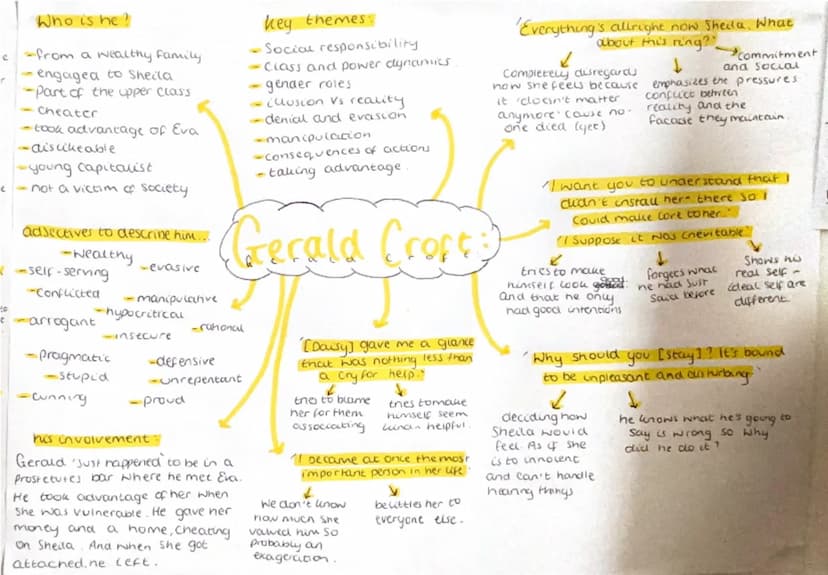 Who is he?
- from a wealthy family
- engaged to Sheila
- Part of the upper class
- cheater
- took advantage of Eva
- dislikeable
- young capitalist
- not a victim of society
Key themes:
- Social responsibility
- Class and power dynamics
- gender roles
- illusion vs reality
- denial and evasion
- manipulation
- consequences of actions
- taking advantage.
'Everything's allright now Sheila. What
about this ring?'
Completely disregards
how she feels because
it 'doesn't matter
anymore' cause no-
one died (yet)
emphasizes the pressures
conflict between
reality and the
facade they maintain.
commitment
and social
'I want you to understand that I
didn't install her there so I
could make love to her..'
'I suppose it was inevitable'
tries to make
himself look good
and that he only
had good intentions
forgets what
he had just
said before
Shows his
real self -
ideal self are
different.
Gerald Croft:
Gerald Croft
adjectives to describe him...
- wealthy
- self-serving
- evasive
- conflicted
- manipulative
- hypocritical
- arrogant
- rational
- insecure
- pragmatic
- defensive
- stupid
- unrepentant
- cunning
- proud
'[Daisy] gave me a glance
that was nothing less than
a cry for help.'
tries to blame
her for them
associating
tries to make
himself seem
helpful.
'Why should you [stay]? It's bound
to be unpleasant and disturbing'
deciding how
Sheila would
feel. As if she
is to innocent
and can't handle
hearing things
he knows what he's going to
say is wrong so why
did he do it?
his involvement:
Gerald 'just happened' to be in a
prostetutes bar where he met Eva.
He took advantage of her when
she was vulnerable. He gave her
money and a home, cheating
on Sheila. And when she got
attached, he left.
'I became at once the most
important person in her life'
We don't know
how much she
valued him so
probably an
exageration.
belittles her to
everyone else.